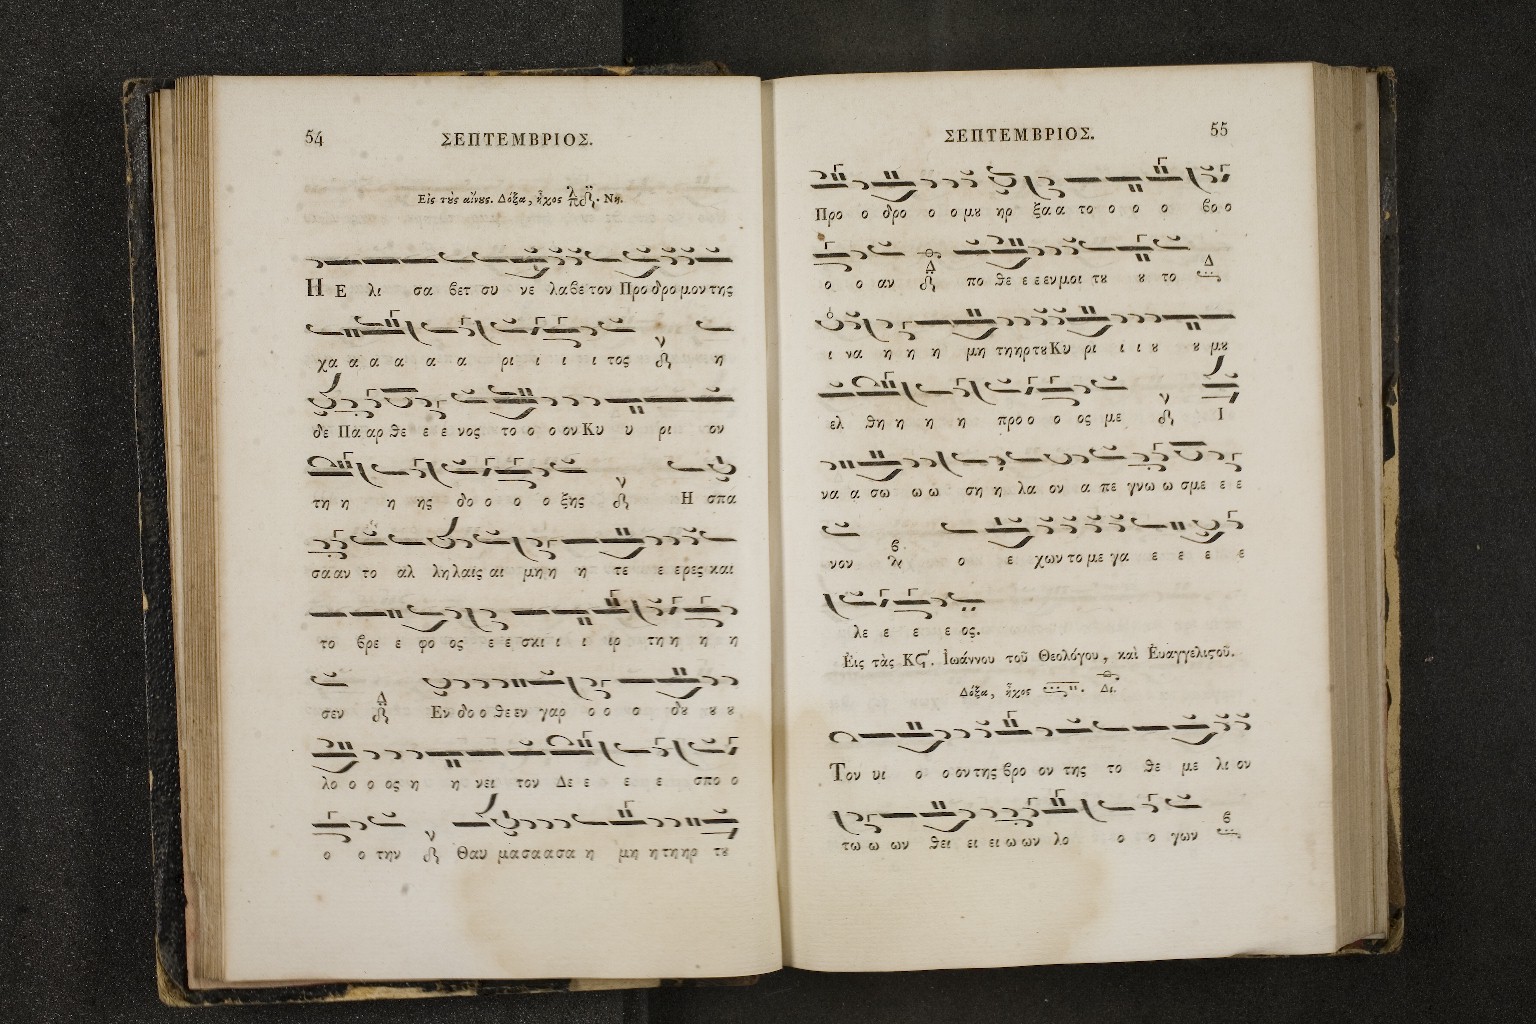 54
ΣΕΠΤΕΜΒΡΙΟΣ.
Εἰς τȣς αἴνȣς. Δόξα, ἦχος πλ δ. Νη.
Η Ε λι σα βετ συ νε λαβε τον Προ δρο μον της
χα α α α α α ρι ι ι ι τος η
δε Πα αρ θε ε ε νος το ο ο ον Κυ υ ρι ον
τη η η ης δο ο ο ο ξης Η σπα
σα αν το αλ λη λαις αι μη η η τε ε ε ρες και
το βρε ε φο ος ε ε σκι ι ι ιρ τη η η η
σεν Εν δο ο θε εν γαρ ο ο ο δȣ ȣ ȣ
λο ο ο ος η η νει τον Δε ε ε ε σπο ο
ο ο την Θαυ μα σα α σα η μη η τη ηρ τȣ
55
ΣΕΠΤΕΜΒΡΙΟΣ.
Προ ο δρο ο ο μȣ ηρ ξα α το ο ο ο βο ο
ο ο αν πο θε ε ε εν μοι τȣ ȣ το
ι να η η η μη τη ηρ τȣ Κυ ρι ι ι ȣ ȣ μȣ
ελ θη η η η προ ο ο ος με Ι
να α σω ω ω ση η λα ον α πε γνω ω σμε ε ε
νον ο ε χων το με γα ε ε ε ε
λε ε ε ε ος.
Εἰς τὰς ΚϚ΄. Ἰωάννου τοῦ Θεολόγου, καὶ Εὐαγγελιϛοῦ.
Δόξα, ἦχος Δι.
Τον υι ο ο ον της βρο ον της το θε με λι ον
τω ω ων θει ει ει ω ων λο ο ο γων